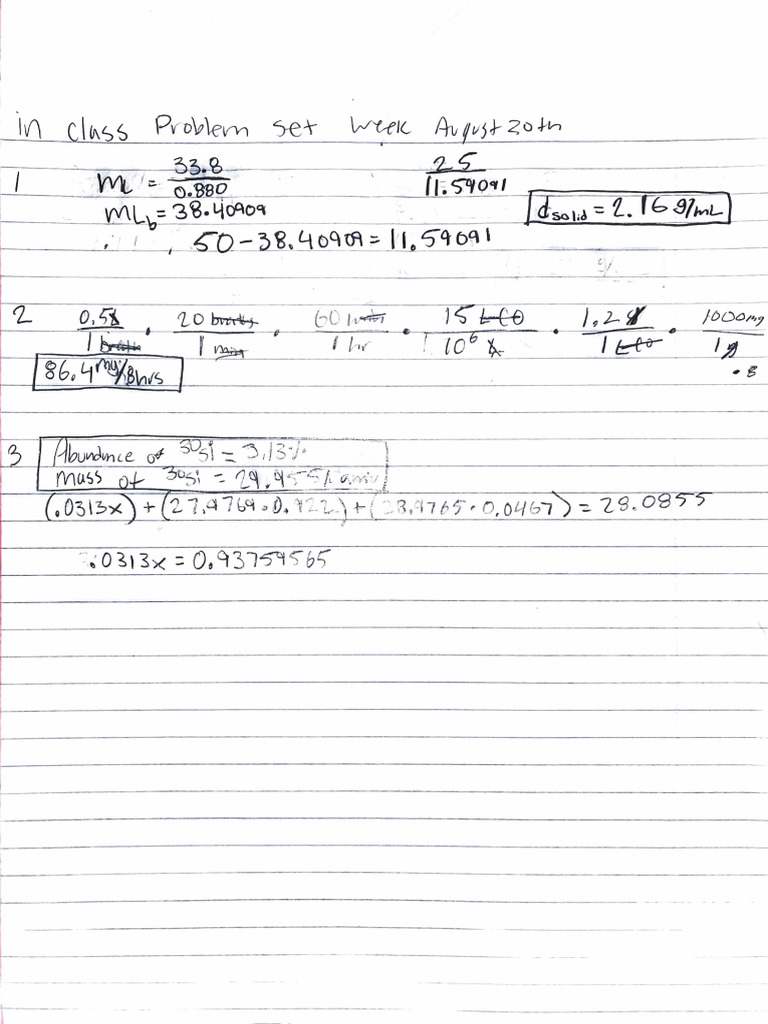 in class Problem set week August 20th
1 mL = 33.8 / 0.880 25 / 11.59091
mL_b = 38.40909 d solid = 2.16 g/mL
50 - 38.40909 = 11.59091
2 0.5L / 1 breath · 20 breaths / 1 min · 60 / 1 hr · 15 L CO / 10^6 L · 1.2 g / 1 L CO · 1000 mg / 1 g · 8
86.4 mg/8hrs
3 Abundance of ^30Si = 3.13%
Mass of ^30Si =
(.0313x) + (27.9769 · 0.922) + (28.9765 · 0.0467) = 28.0855
.0313x = 0.93759565